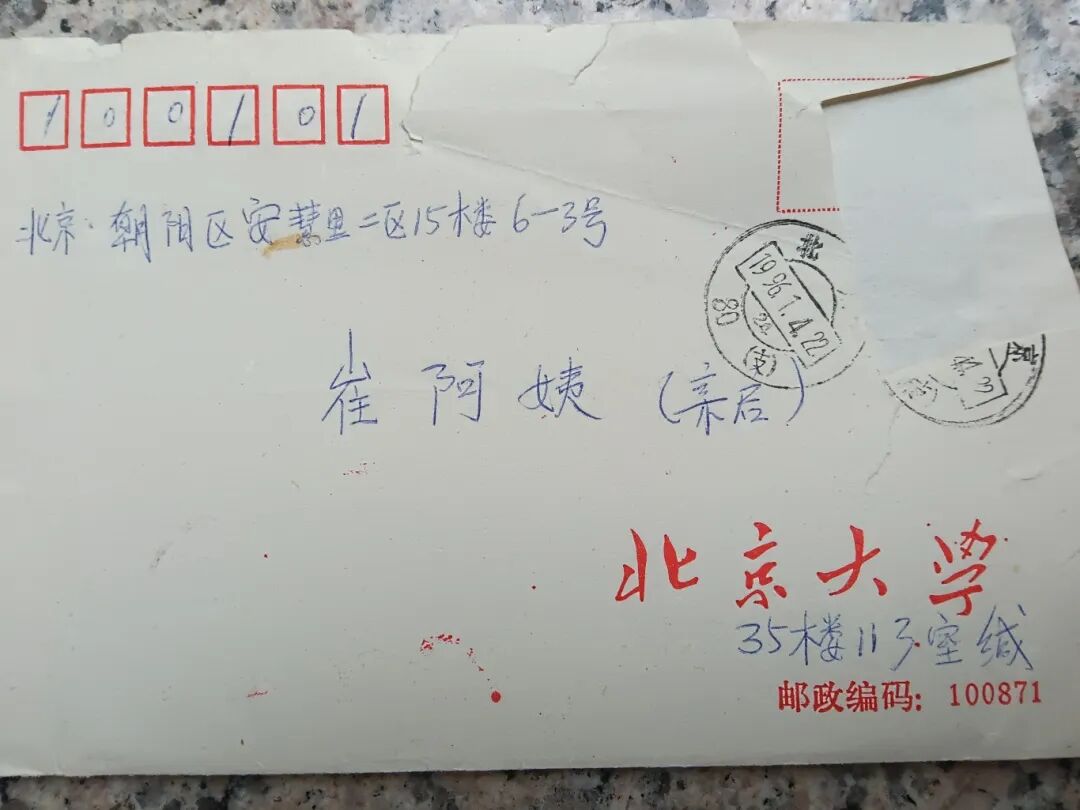 100101
北京·朝阳区安慧里二区15楼6-3号
崔阿姨（亲启）
北
1996.1.4.22
80
(支)
京
北京大学
35楼113室缄
邮政编码：100871